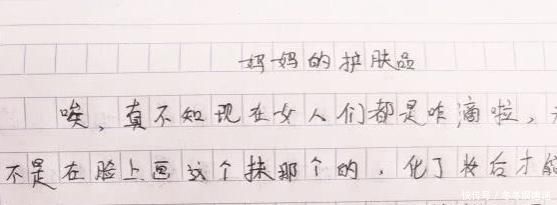 妈妈的护肤品
唉，真不知现在女人们都是咋滴啦，
不是在脸上画这个抹那个的，化了妆后才能